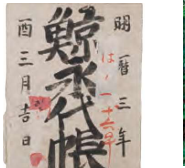 明暦三年
鯨永代帳
酉三月吉日